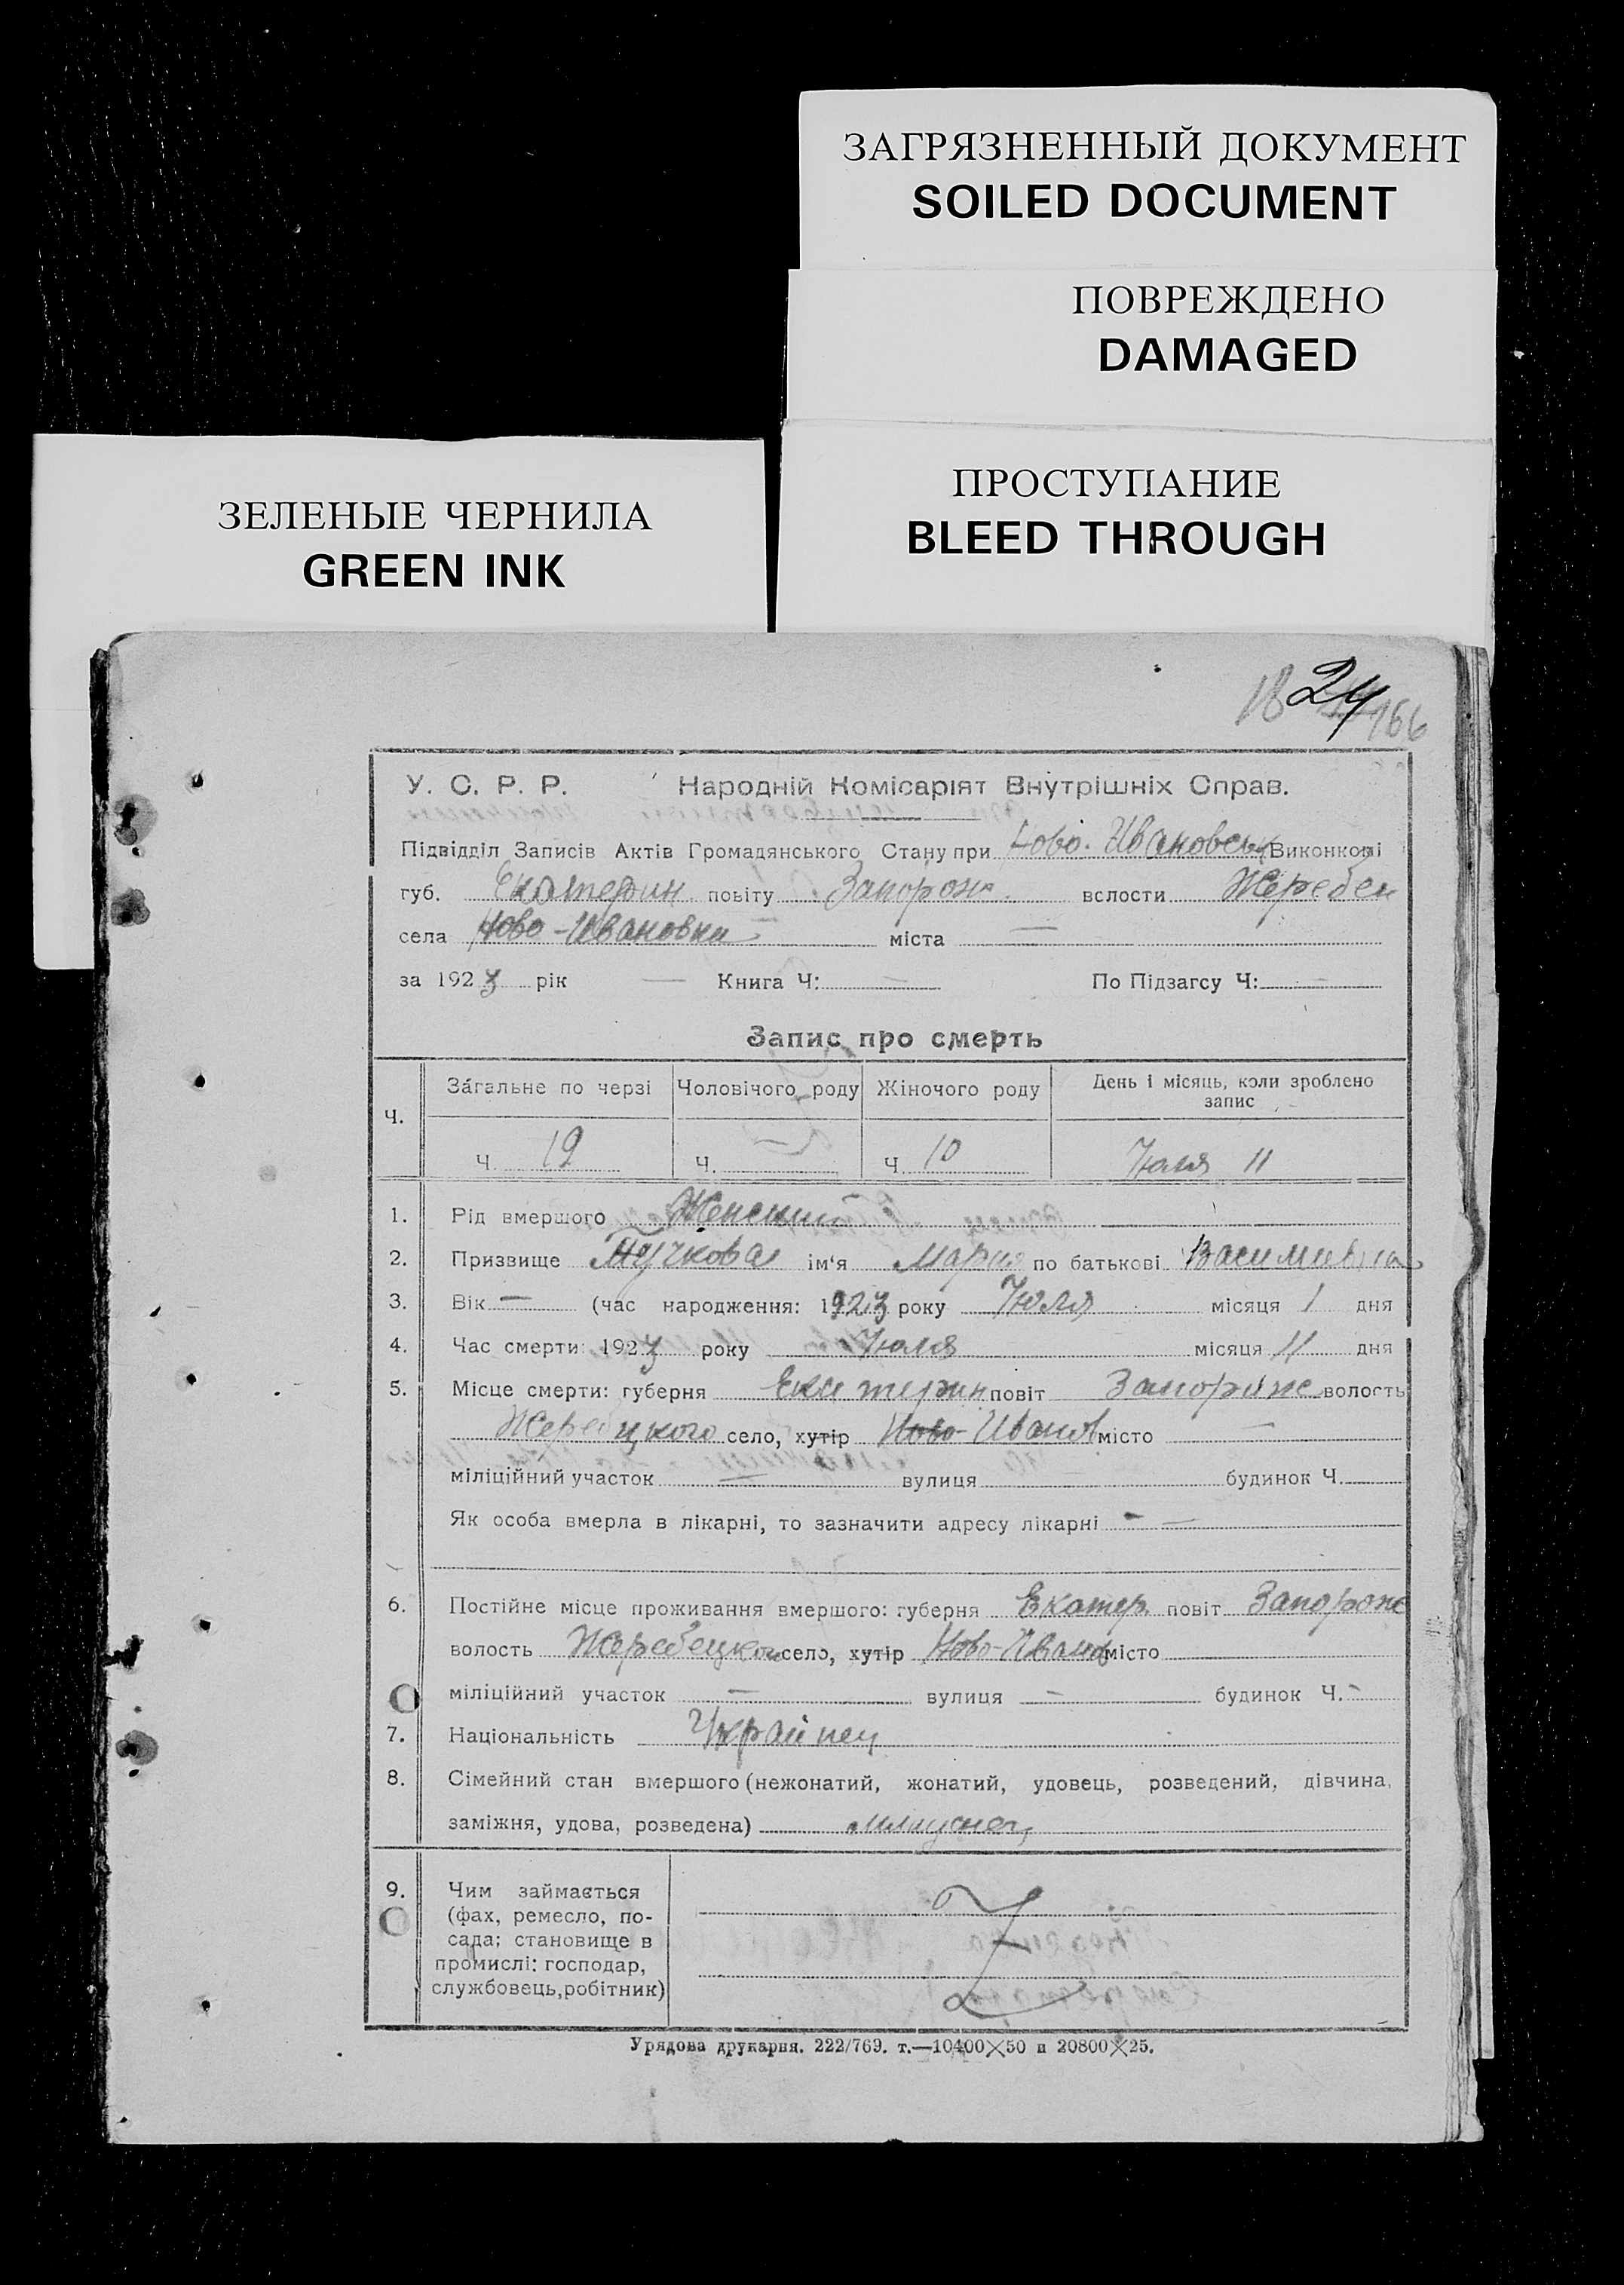 ЗАГРЯЗНЕННЫЙ ДОКУМЕНТ
SOILED DOCUMENT
ПОВРЕЖДЕНО
DAMAGED
ПРОСТУПАНИЕ
BLEED THROUGH
ЗЕЛЕНЫЕ ЧЕРНИЛА
GREEN INK
18 24 166
У. С. Р. Р. Народній Комісаріят Внутрішніх Справ.
Підвідділ Записів Актів Громадянського Стану при Ново-Ивановськ Виконкомі
губ. Екатерин. повіту Запорож. вслости Жеребец
села Ново-Ивановки міста —
за 1923 рік — Книга Ч: — По Підзагсу Ч: —
Запис про смерть
Ч.
Загальне по черзі Чоловічого роду Жіночого роду День і місяць, коли зроблено запис
Ч. 19 Ч. — Ч. 10 Июля 11
1. Рід вмершого Женский
2. Призвище ім'я Мария по батькові Василивна
3. Вік — (час народження: 1923 року Июля місяця 1 дня
4. Час смерти: 1923 року Июля місяця 11 дня
5. Місце смерти: губерня Екатерин повіт Запориже волость
Жеребецкого село, хутір Ново-Иванов місто —
міліційний участок — вулиця будинок Ч.
Як особа вмерла в лікарні, то зазначити адресу лікарні — —
6. Постійне місце проживання вмершого: губерня Екатер. повіт Запорож
волость Жеребецкой село, хутір Ново-Иванов місто
міліційний участок — вулиця — будинок Ч. -
7. Національність Украинец
8. Сімейний стан вмершого (нежонатий, жонатий, удовець, розведений, дівчина,
заміжня, удова, розведена)
9. Чим займається
(фах, ремесло, по-
сада; становище в
промислі: господар,
службовець, робітник)
Урядова друкарня. 222/769. т.—10400×50 п 20800×25.